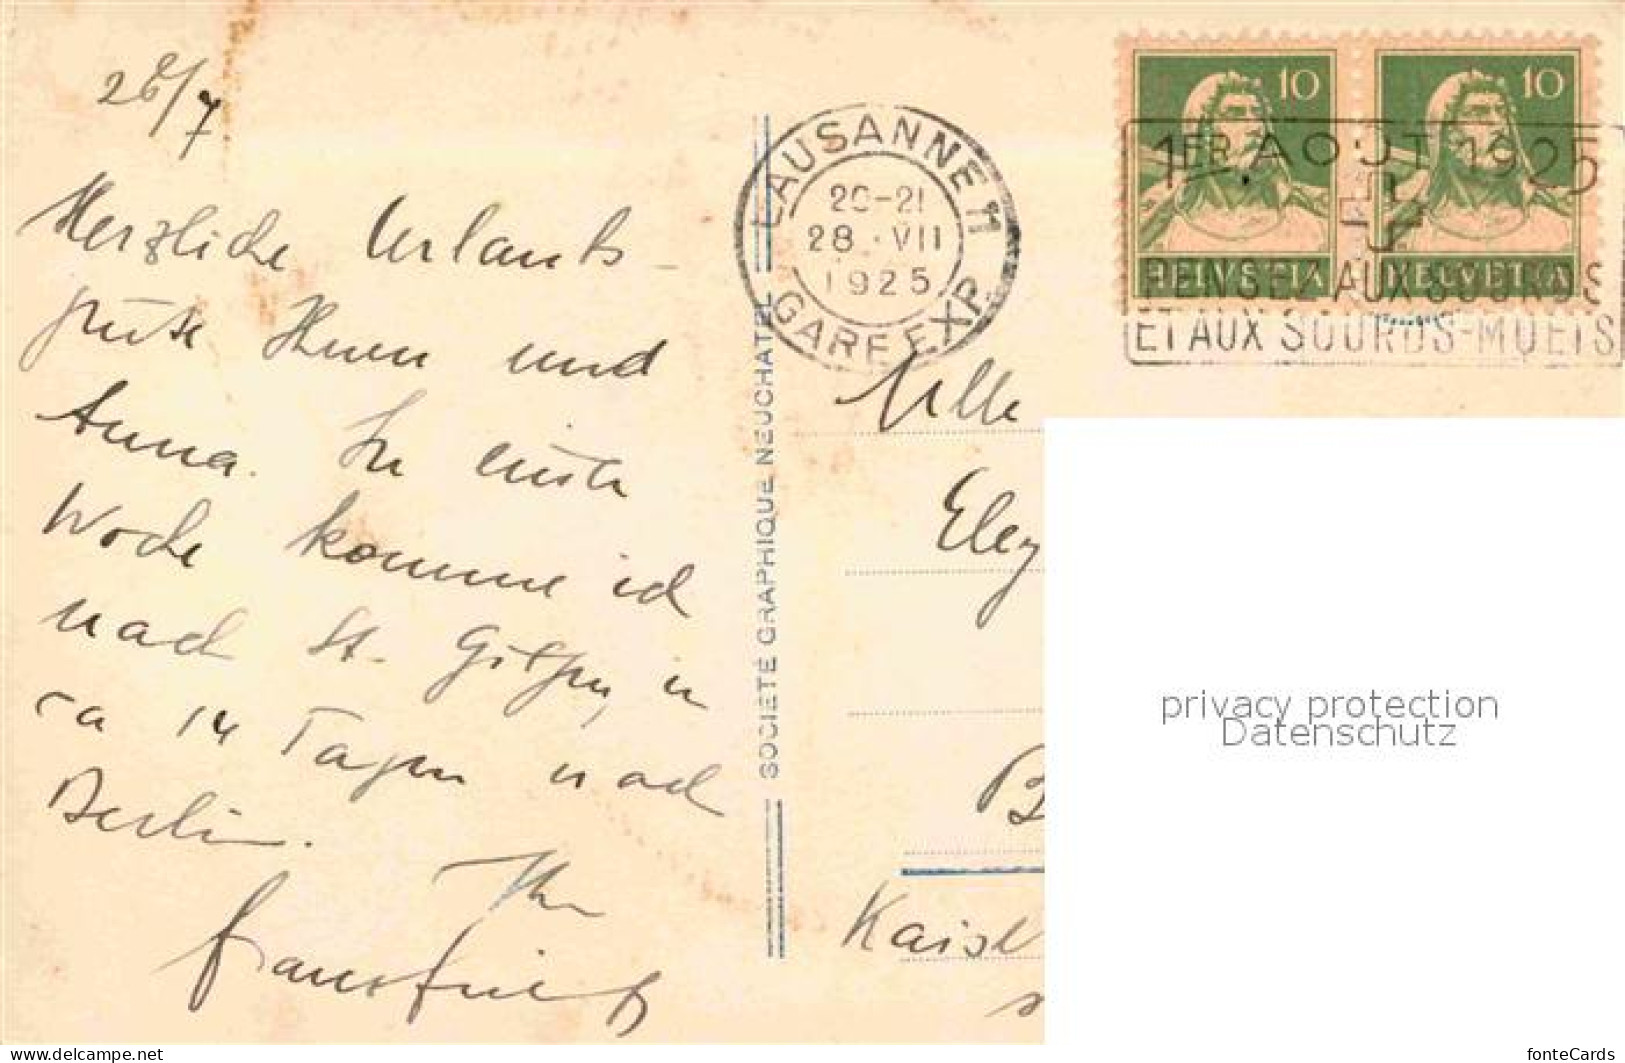 28/7
Herzliche Urlaubs-
grüße Ihnen und
Anna. In einer
Woche komme ich
nach St. Gilgen, in
ca 14 Tagen nach
Berlin.
Ihr
LAUSANNE 11
20-21
28.VII
1925
GARE EXP.
10 10
HELVETIA HELVETIA
1ER AOUT 1925
PENSEZ AUX SOURDS
ET AUX SOURDS-MUETS
SOCIÉTÉ GRAPHIQUE NEUCHATEL
Mlle
B
privacy protection
Datenschutz
https://www.delcampe.net
fonteCards